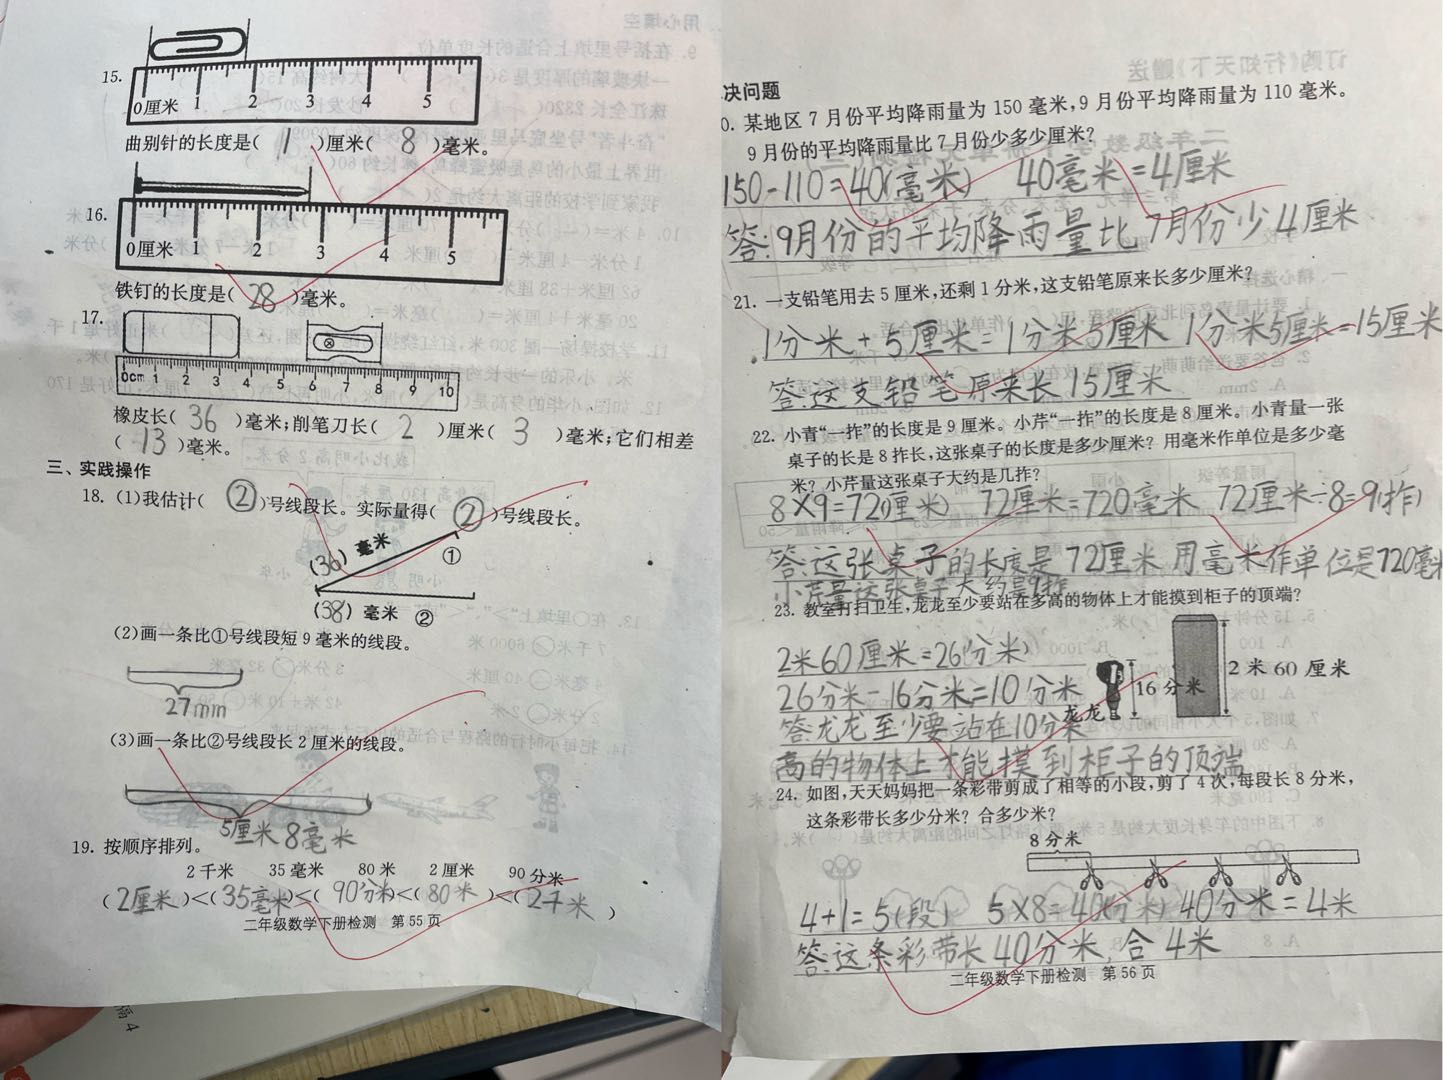 15.
0厘米 1 2 3 4 5
曲别针的长度是( 1 )厘米( 8 )毫米。
16.
0厘米 1 2 3 4 5
铁钉的长度是( 28 )毫米。
17.
0cm 1 2 3 4 5 6 7 8 9 10
橡皮长( 36 )毫米;削笔刀长( 2 )厘米( 3 )毫米;它们相差
( 13 )毫米。
三、实践操作
18. (1)我估计( ② )号线段长。实际量得( ② )号线段长。
(36) 毫米 ①
(38) 毫米 ②
(2)画一条比①号线段短 9 毫米的线段。
27mm
(3)画一条比②号线段长 2 厘米的线段。
5厘米 8毫米
19. 按顺序排列。
2 千米 35 毫米 80 米 2 厘米 90 分米
( 2厘米 )<( 35毫米 )<( 90分米 )<( 80米 )<( 2千米 )
二年级数学下册检测 第 55 页
决问题
0. 某地区 7 月份平均降雨量为 150 毫米,9 月份平均降雨量为 110 毫米。
9 月份的平均降雨量比 7 月份少多少厘米?
150-110=40(毫米) 40毫米=4厘米
答:9月份的平均降雨量比 7月份少4厘米
21. 一支铅笔用去 5 厘米,还剩 1 分米,这支铅笔原来长多少厘米?
1分米+5厘米=1分米5厘米 1分米5厘米=15厘米
答:这支铅笔原来长15厘米
22. 小青“一拃”的长度是 9 厘米。小芹“一拃”的长度是 8 厘米。小青量一张
桌子的长是 8 拃长,这张桌子的长度是多少厘米? 用毫米作单位是多少毫
米? 小芹量这张桌子大约是几拃?
8×9=72(厘米) 72厘米=720毫米 72厘米÷8=9(拃)
答:这张桌子的长度是72厘米 用毫米作单位是720毫米
小芹量这张桌子大约是9拃
23. 教室打扫卫生,龙龙至少要站在多高的物体上才能摸到柜子的顶端?
2米60厘米=26(分米)
26分米-16分米=10分米
答龙龙至少要站在10分米
高的物体上才能摸到柜子的顶端
龙龙 16 分米 2 米 60 厘米
24. 如图,天天妈妈把一条彩带剪成了相等的小段,剪了 4 次,每段长 8 分米,
这条彩带长多少分米? 合多少米?
8 分米
4+1=5(段) 5×8=40(分米) 40分米=4米
答:这条彩带长40分米,合4米
二年级数学下册检测 第 56 页